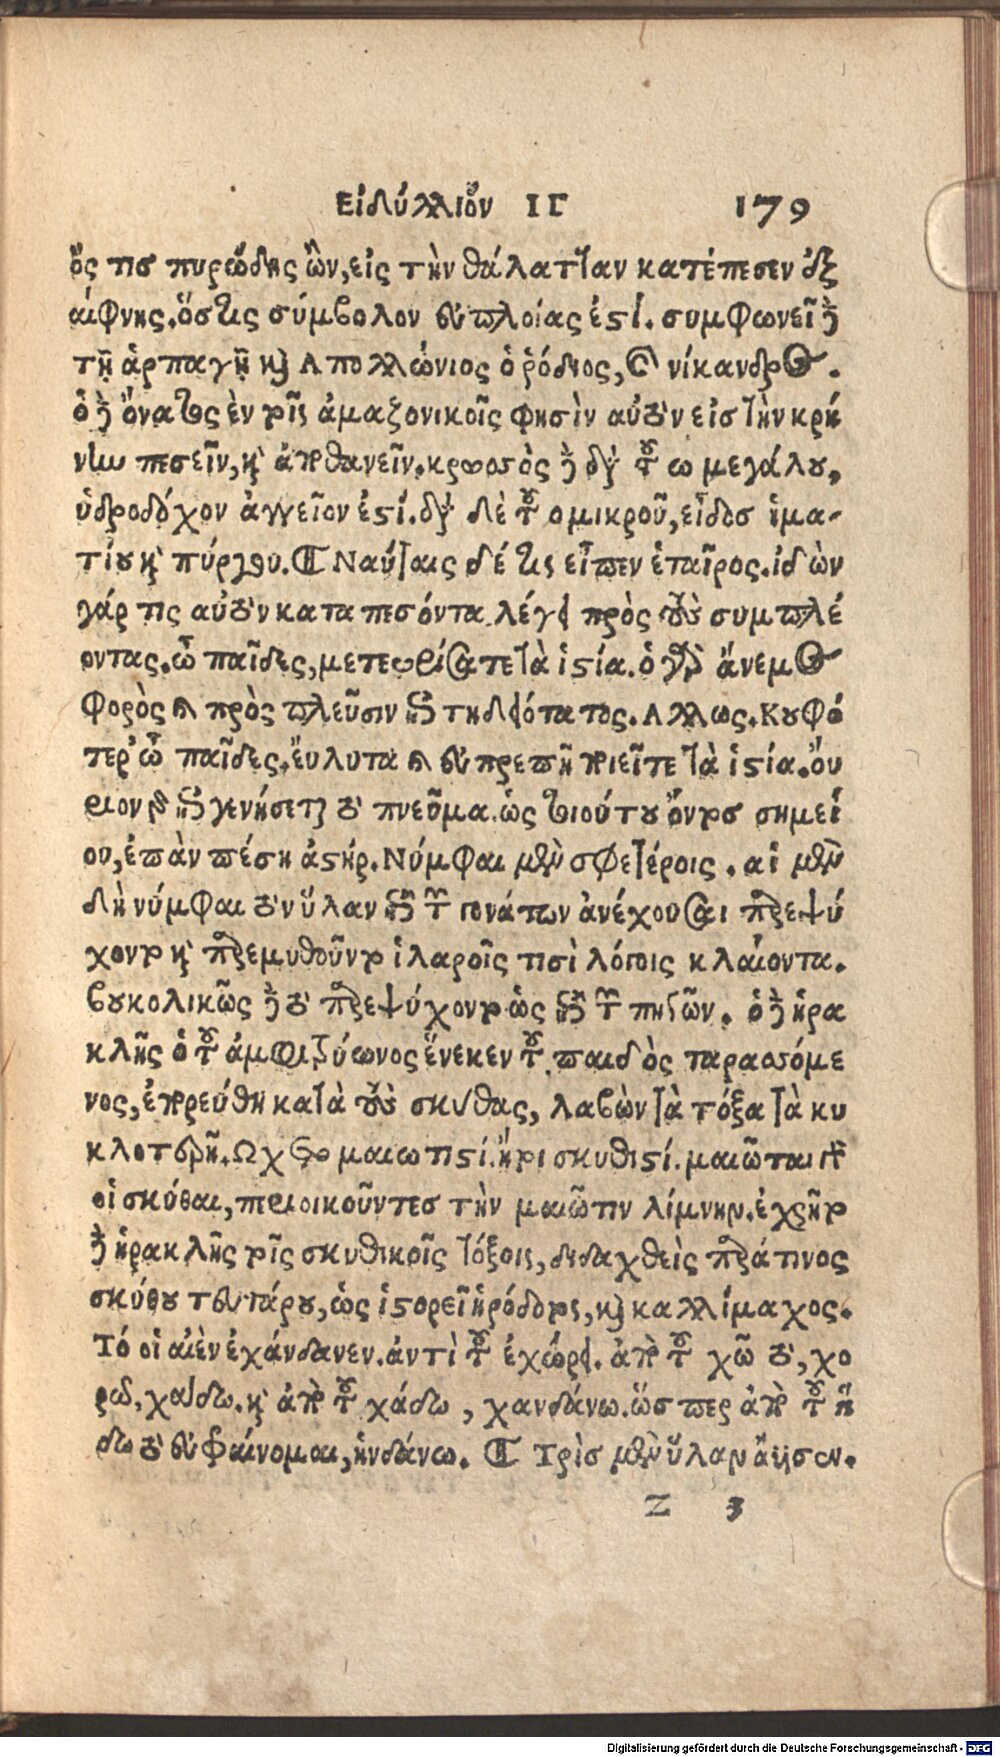 Εἰδύλλιον ΙΓ 179
ὅς τις πυρώδης ὢν, εἰς τὴν θάλατταν κατέπεσεν ἐξ
αίφνης. ὅστις σύμβολον εὐπλοίας ἐστί. συμφωνεῖ δὲ
τῇ ἁρπαγῇ καὶ Απολλώνιος ὁ ῥόδιος, καὶ νίκανδρος.
ὁ δὲ ὄνατος ἐν τοῖς ἀμαζονικοῖς φησὶν αὐτὸν εἰς τὴν κρή
νην πεσεῖν, καὶ ἀποθανεῖν. κρωσσὸς δὲ διὰ τοῦ ω μεγάλου,
ὑδροδόχον ἀγγεῖον ἐστί. διὰ δὲ τοῦ ο μικροῦ, εἶδος ἱμα-
τίου καὶ πύργου. Ναύταις δέ τις εἶπεν ἑταῖρος. ἰδὼν
γάρ τις αὐτὸν καταπεσόντα λέγει πρὸς τοὺς συμπλέ
οντας. ὦ παῖδες, μετεωρίσατε τὰ ἱστία. ὁ γὰρ ἄνεμος
φορὸς καὶ πρὸς πλεῦσιν ἐπιτηδειότατος. Αλλως. Κουφό
τερ' ὦ παῖδες. εὔλυτα καὶ εὐπρεπῆ ποιεῖτε τὰ ἱστία. οὔ
ριον γὰρ ἐπιγενήσεται τὸ πνεῦμα. ὡς τοιούτου ὄντος σημεί
ου, ἐπὰν πέσῃ ἀστήρ. Νύμφαι μὲν σφετέροις. αἱ μὲν
δὴ νύμφαι τὸν ὕλαν ἐπὶ τῶν γονάτων ἀνέχουσαι παρεψύ
χοντο καὶ παρεμυθοῦντο ἱλαροῖς τισὶ λόγοις κλαίοντα.
βουκολικῶς δὲ τὸ παρεψύχοντο ὡς ἐπὶ τῶν παίδων. ὁ δὲ ἡρα
κλῆς ὁ τοῦ ἀμφιτρύωνος ἕνεκεν τοῦ παιδὸς ταρασσόμε
νος, ἐπορεύθη κατὰ τοὺς σκύθας, λαβὼν τὰ τόξα τὰ κυ
κλοτερῆ. Ωχετο μαιωτιστί. ἤτοι σκυθιστί. μαιῶται γὰρ
οἱ σκύθαι, περιοικοῦντες τὴν μαιῶτιν λίμνην. ἐχρῆτο
δὲ ἡρακλῆς τοῖς σκυθικοῖς τόξοις, διδαχθεὶς παρά τινος
σκύθου τευτάρου, ὡς ἱστορεῖ ἡρόδοτος, καὶ καλλίμαχος.
Τό οἱ αἰὲν ἐχάνδανεν. ἀντὶ τοῦ ἐχώρει. ἀπὸ τοῦ χῶ τὸ, χο
ρῶ, χάδω. καὶ ἀπὸ τοῦ χάδω, χανδάνω. ὥσπερ ἀπὸ τοῦ ἥ
δω τὸ εὐφραίνομαι, ἡνδάνω. Τρὶς μὲν ὕλαν ἄϋσεν.
Z 3
Digitalisierung gefördert durch die Deutsche Forschungsgemeinschaft - DFG